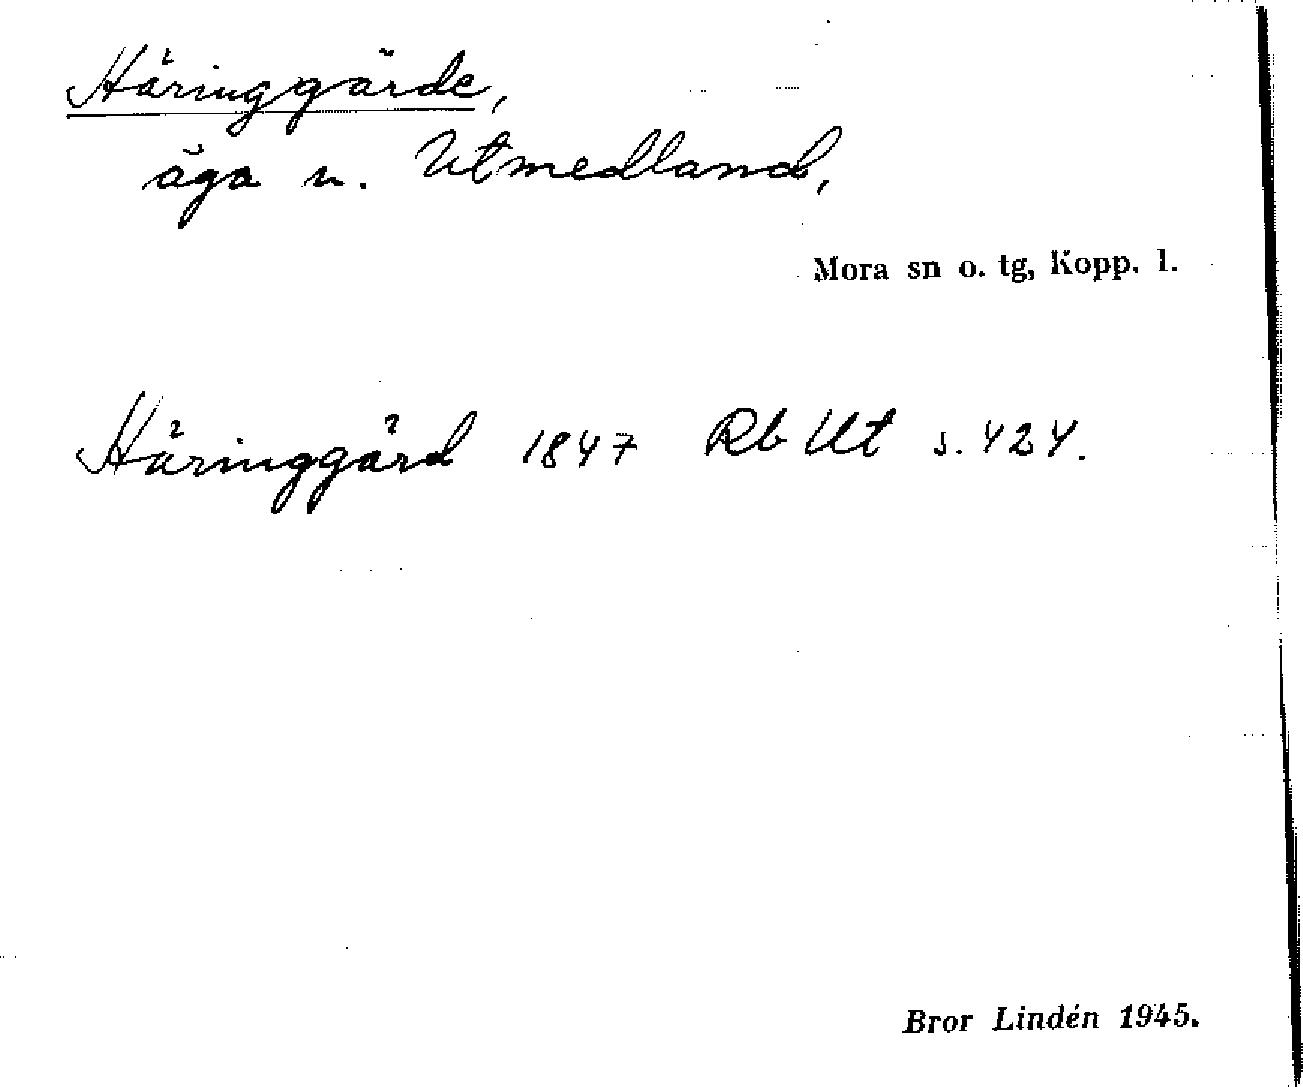 Häringgärde,
äga u. Utmedland,
Mora sn o. tg, Kopp. l.
Häringgärd 1847 Rb Ut s. 424.
Bror Lindén 1945.